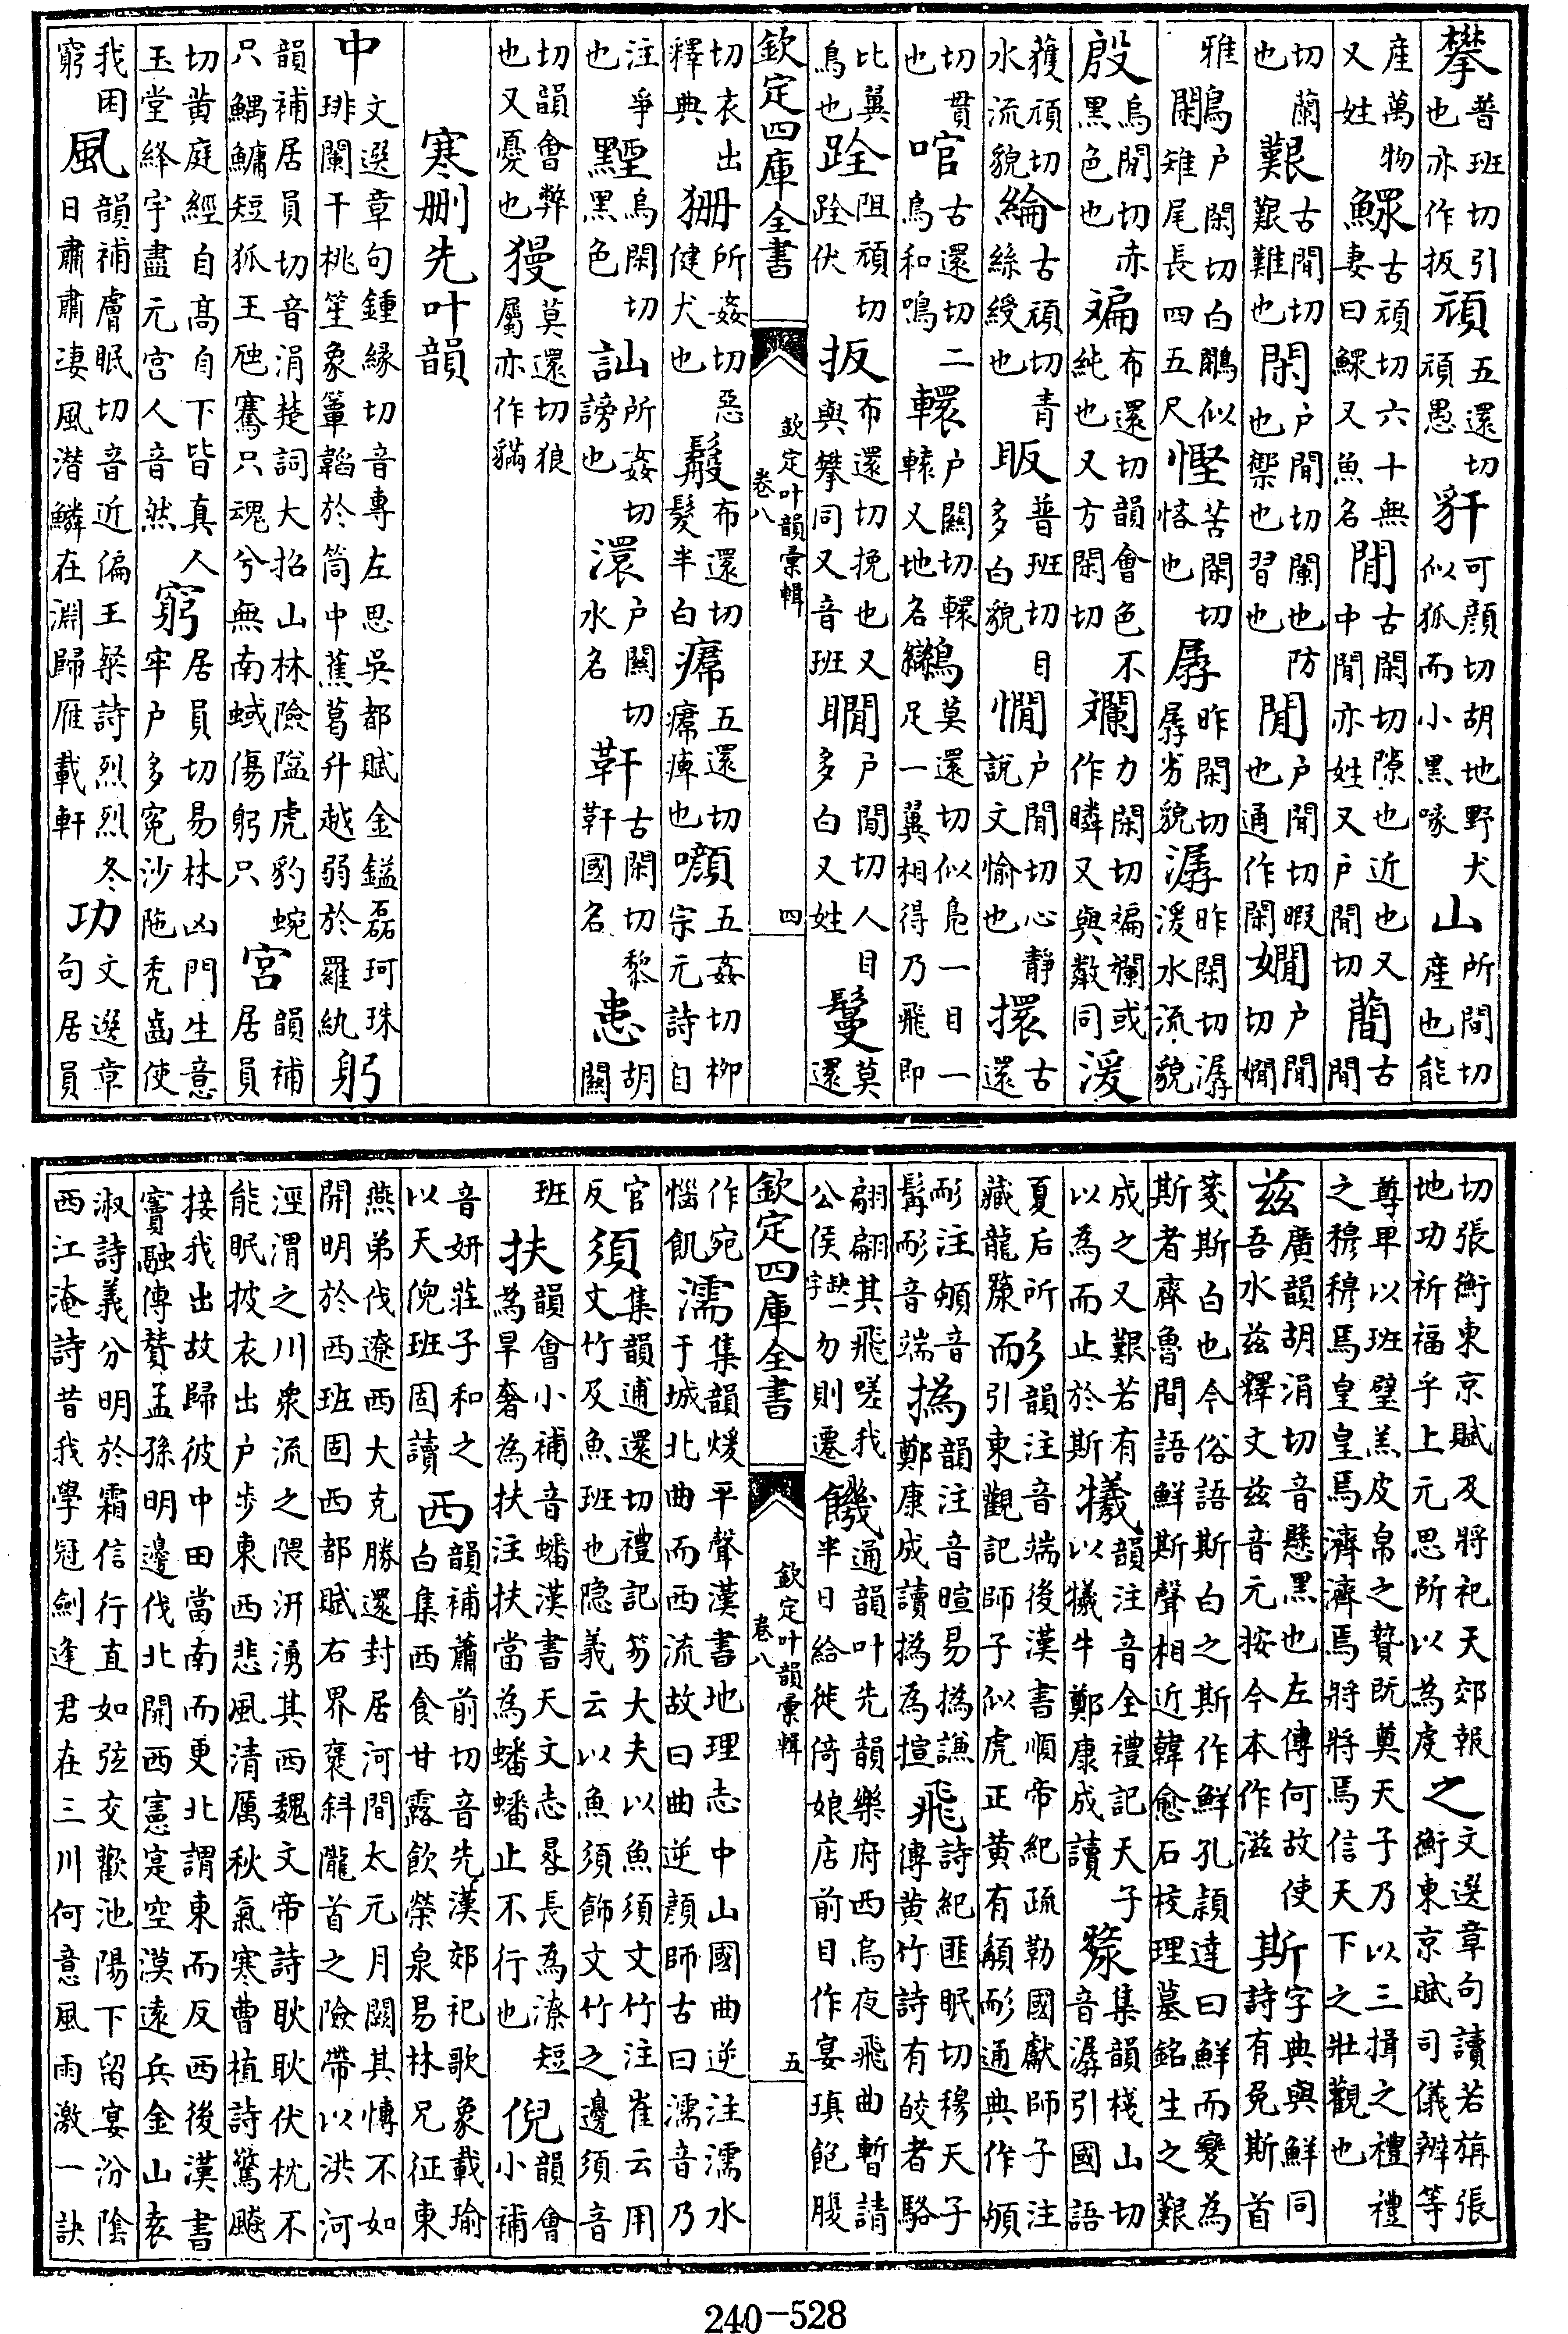 攀普班切引也亦作扳頑五還切頑愚豻可顔切胡地野犬似狐而小黑喙山所間切産也能
産萬物又姓鰥古頑切六十無妻曰鰥又魚名閒古閑切隙也近也又中間亦姓又户閒切蕳古閒
切蘭也艱古閒切艱難也閑户閒切闌也防也禦也習也閒户閒切暇也通作閑嫺户閒切嫺
雅鷴户閑切白鷴似雉尾長四五尺慳苦閑切恡也孱昨閑切孱劣貌潺昨閑切潺湲水流貌
殷烏閑切赤黑色也斒布還切韻會色不純也又方閑切斕力閑切斒斕或作瞵又與㪚同湲
獲頑切水流貌綸古頑切青絲綬也眅普班切目多白貌憪户閒切心靜説文愉也擐古還
切貫也古還切二鳥和鳴轘户關切轘轅又地名莫還切似鳬一目一足一翼相得乃飛即
比翼鳥也跧阻頑切跧伏扳布還切挽也又與攀同又音班瞯户閒切人目多白又姓鬘莫還
欽定四庫全書 欽定叶韻彙輯 卷八 四
切衣出釋典狦所姦切惡健犬也布還切髮半白五還切痺也五姦切柳宗元詩自
注爭也黫烏閑切黑色訕所姦切謗也澴户關切水名靬古閑切黎靬國名患胡關
切韻會弊也又憂也獌莫還切狼屬亦作
寒刪先叶韻
中文選章句鍾緣切音專左思吳都賦金鎰磊珂珠琲闌干桃笙象簟韜於筒中蕉葛升越弱於羅紈躬
韻補居員切音涓楚詞大招山林險隘虎豹蜿只鰅鱅短狐王虺騫只魂兮無南蜮傷躬只宮韻補居員
切黄庭經自髙自下皆真人玉堂絳宇盡元宫人音然窮居員切易林凶門生意牢户多寃沙陁禿齒使
我困窮風韻補膚眠切音近偏王粲詩烈烈冬日肅肅凄風潜鱗在淵歸雁載軒功文選章句居員
切張衡東京賦及將祀天郊報地功祈福乎上元思所以為虔之文選章句讀若旃張衡東京賦司儀辨等
尊卑以班璧羔皮帛之贄既奠天子乃以三揖之禮禮之穆穆焉皇皇焉濟濟焉將將焉信天下之壯觀也
兹廣韻胡涓切音懸黑也左傳何故使吾水兹釋文兹音元按今本作滋斯字典與鮮同詩有兔斯首
箋斯白也今俗語斯白之斯作鮮孔頴達曰鮮而變為斯者齊魯間語鮮斯聲相近韓愈石校理墓銘生之艱
成之又艱若有以為而止於斯犧韻注音全禮記天子以犧牛鄭康成讀漦集韻棧山切音潺引國語
夏后所藏龍漦耏韻注音端後漢書順帝紀疏勒國獻師子注引東觀記師子似虎正黄有䫇耏通典作頓
耏注頓音髯耏音端撝韻注音暄易撝謙鄭康成讀撝為揎飛詩紀匪眠切穆天子傳黄竹詩有皎者駱
翩翩其飛嗟我公侯缺一字勿則遷饑通韻叶先韻樂府西烏夜飛曲暫請半日給徙倚娘店前目作宴瑱飽腹
欽定四庫全書 欽定叶韻彙輯 卷八 五
作宛惱飢濡集韻煖平聲漢書地理志中山國曲逆注濡水于城北曲而西流故曰曲逆顔師古曰濡音乃
官反須集韻逋還切禮記笏大夫以魚須文竹注崔云用文竹及魚班也隐義云以魚須飾文竹之邊須音
班扶韻會小補音蟠漢書天文志晷長為潦短為旱奢為扶注扶當為蟠蟠止不行也倪韻會小補
音妍莊子和之以天倪班固讀西韻補蕭前切音先漢郊祀歌象載瑜白集西食甘露飲榮泉易林兄征東
燕弟伐遼西大克勝還封居河間太元月闕其愽不如開明於西班固西都賦右界褒斜隴首之險帶以洪河
涇渭之川衆流之隈汧湧其西魏文帝詩耿耿伏枕不能眠披衣出户步東西悲風清厲秋氣寒曹植詩驚飈
接我出故歸彼中田當南而更北謂東而反西後漢書竇融傳贊孟孫明邊伐北開西憲寔空漠遠兵金山袁
淑詩義分明於霜信行直如弦交歡池陽下留宴汾陰西江淹詩昔我學冠劍逢君在三川何意風雨激一訣
240-528